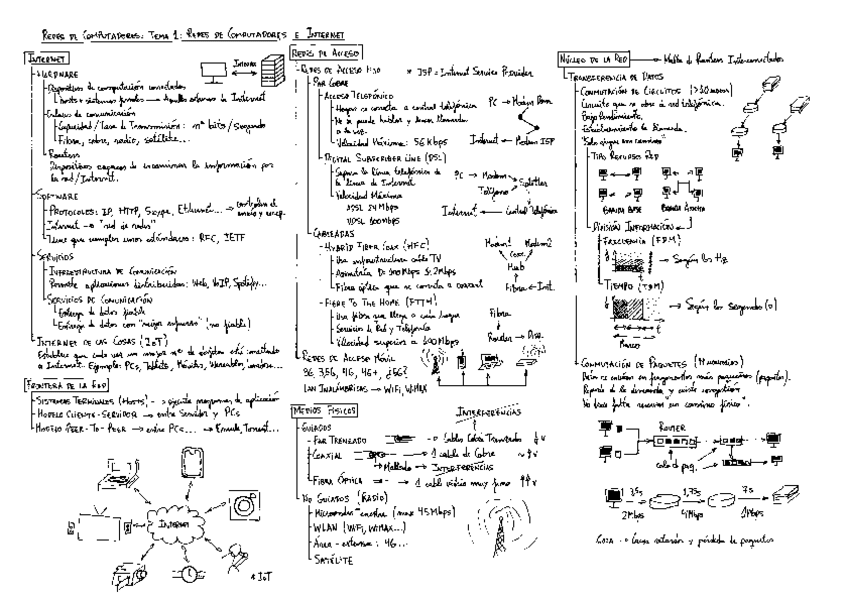 REDES DE COMPUTADORES: TEMA 1: REDES DE COMPUTADORES E INTERNET
INTERNET
HARDWARE
Dispositivos de computación conectados
Hosts o sistemas finales → Aquellos externos de Internet
Enlaces de comunicación
Capacidad/Tasa de Transmisión: nº bits/segundo
Fibra, cobre, radio, satélite...
Routers
Dispositivos capaces de encaminar la información por
la red/Internet.
SOFTWARE
PROTOCOLOS: IP, HTTP, Skype, Ethernet... → controlan el
envío y recep.
Internet → "red de redes"
Tiene que cumplir unos estándares: RFC, IETF
SERVICIOS
INFRAESTRUCTURA DE COMUNICACIÓN
Permite aplicaciones distribuidas: Web, VoIP, Spotify...
SERVICIOS DE COMUNICACIÓN
Entrega de datos fiable
Entrega de datos con "mejor esfuerzo" (no fiable)
INTERNET DE LAS COSAS (IoT)
Establece que cada vez un mayor nº de objetos está conectado
a Internet. Ejemplo: PCs, Tablets, Móviles, Wearables,
FRONTERA DE LA RED
SISTEMAS TERMINALES (HOSTS) → ejecuta programas de aplicación
MODELO CLIENTE-SERVIDOR → entre Servidor y PCs
MODELO PEER-TO-PEER → entre PCs... → Emule, Torrent...
INTERNET
* IoT
REDES DE ACCESO
REDES DE ACCESO FIJO * ISP = Internet Service Provider
POR COBRE
ACCESO TELEFÓNICO
Hogar se conecta a central telefónica
No se puede hablar y tener llamada
a la vez.
Velocidad Máxima: 56 Kbps
PC → Modem
Internet ← Modem ISP
DIGITAL SUBSCRIBER LINE (DSL)
Separa la línea telefónica de
la línea de Internet
Velocidad Máxima
PC → Modem
Splitter
Teléfono
Internet ← Central Telefónica
CABLEADAS
HYBRID FIBER COAX (HFC)
Usa infraestructura cable TV
Fibra óptica que se conecta a coaxial
Modem1 Modem2
Coax.
Hub
Fibra ← Int.
FIBER TO THE HOME (FTTH)
Usa fibra que llega a cada hogar
Servicios de Red y Telefonía
Velocidad superior a 100Mbps
Fibra
Router → Disp.
REDES DE ACCESO MÓVIL
3G, 3,5G, 4G, 4G+, ¿5G?
LAN INALÁMBRICAS → WiFi, WiMAX
MEDIOS FÍSICOS
INTERFERENCIAS
GUIADOS
PAR TRENZADO → Cables Cobre Trenzado
COAXIAL → 1 cable de Cobre
Mallado → INTERFERENCIAS
FIBRA ÓPTICA → 1 cable vidrio muy fino
NO GUIADOS (RADIO)
Microondas terrestre (max 45Mbps)
WLAN (WiFi, WiMAX...)
Área-extensa: 4G...
SATÉLITE
NÚCLEO DE LA RED → Malla de Routers Interconectados
TRANSFERENCIA DE DATOS
CONMUTACIÓN DE CIRCUITOS
Circuito que se abre a red telefónica.
Bajo Rendimiento.
Establecimiento de llamada.
"Solo sigue un camino"
TIPO RECURSOS RED
BANDA BASE BANDA ANCHA
DIVISIÓN INFORMACIÓN
FRECUENCIA (FDM)
→ Según los Hz
TIEMPO (TDM)
→ Según los segundos (s)
Marco
CONMUTACIÓN DE PAQUETES
Datos se envían en fragmentos más pequeños (paquetes).
Reparto de la demanda y existe congestión
No hace falta reservar un "camino físico".
ROUTER
cola d paq.
3,5s 1,75s 7s
2Mbps 4Mbps 1Mbps
COLA → Causa retardo y pérdida de paquetes